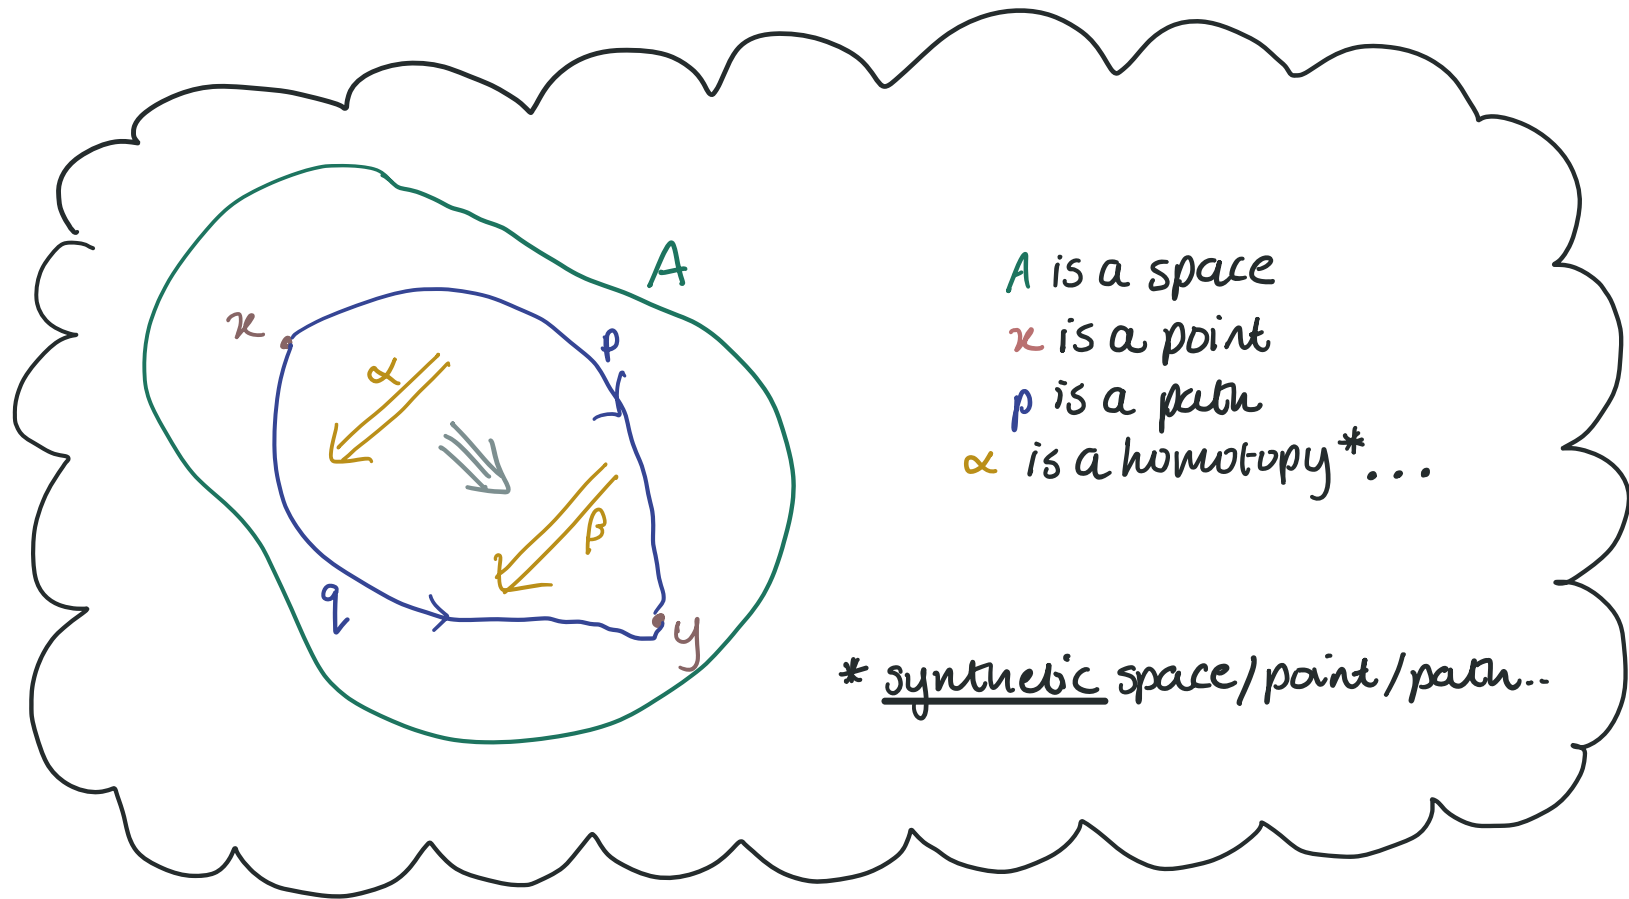 A
x
p
α
β
q
y
A is a space
x is a point
p is a path
α is a homotopy*...
* synthetic space/point/path..